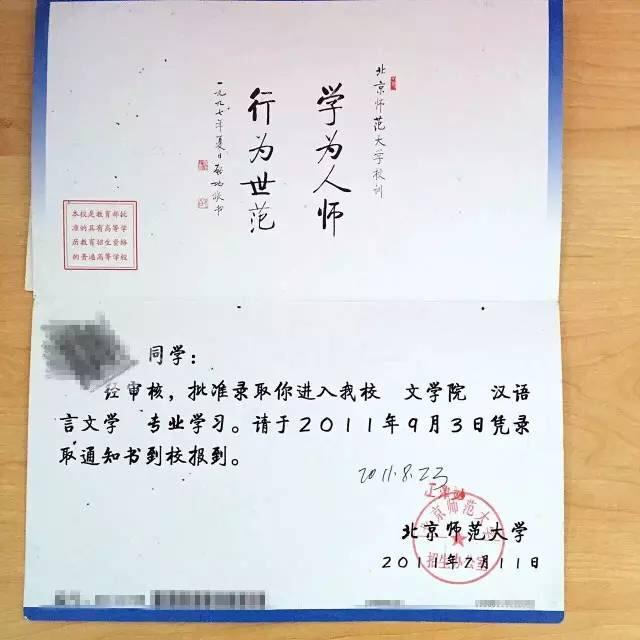 北京师范大学校训
学为人师
行为世范
一九九七年夏日启功敬书
本校是教育部批
准的具有高等学
历教育招生资格
的普通高等学校
同学：
经审核，批准录取你进入我校 文学院 汉语
言文学 专业学习。请于2011年9月3日凭录
取通知书到校报到。
2011.8.23
北京师范大学
招生办公室
北京师范大学
2011年7月11日